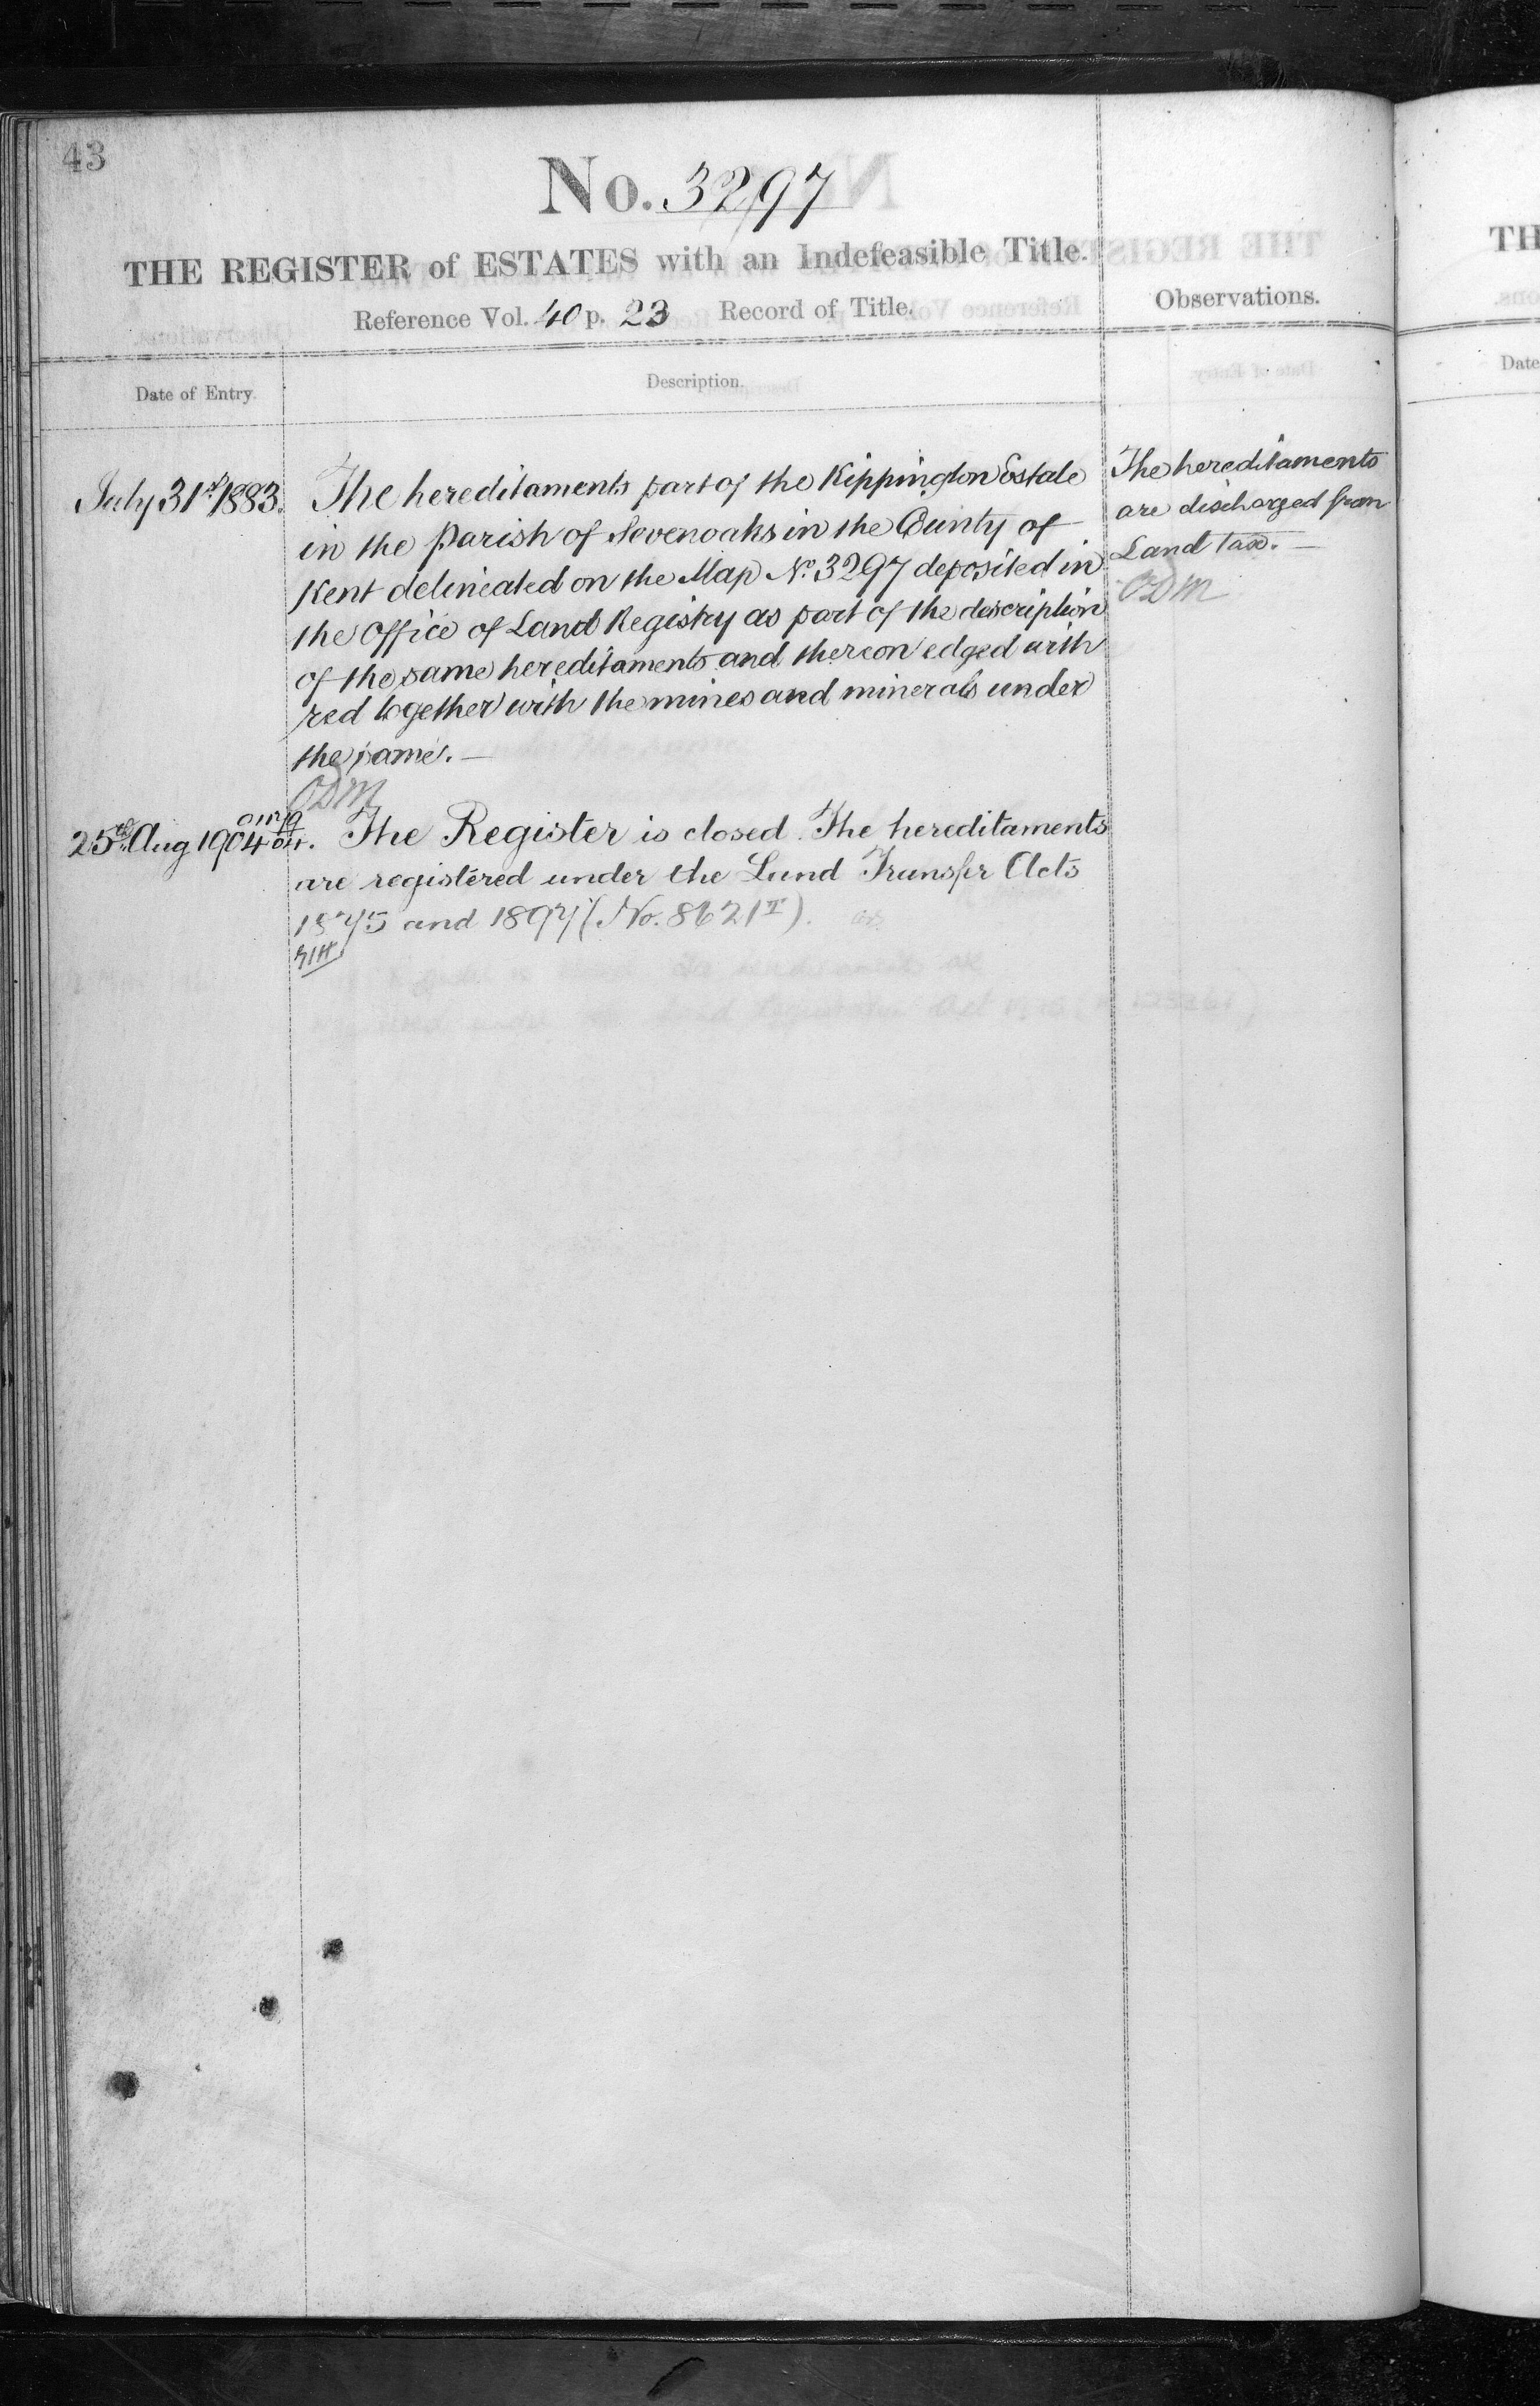 43
No. 3297
THE REGISTER of ESTATES with an Indefeasible Title.
Reference Vol. 40 p. 23 Record of Title.
Observations.
Date of Entry.
Description.
July 31st 1883.
The hereditaments part of the Kippington Estate
in the Parish of Sevenoaks in the County of
Kent delineated on the Map No. 3297 deposited in
the Office of Land Registry as part of the description
of the same hereditaments and thereon edged with
red together with the mines and minerals under
the same. —
ODM
The hereditaments
are discharged from
Land tax. —
ODM
25th Aug 1904
The Register is closed. The hereditaments
are registered under the Land Transfer Acts
1875 and 1897 (No. 8621 I).
TH
Date